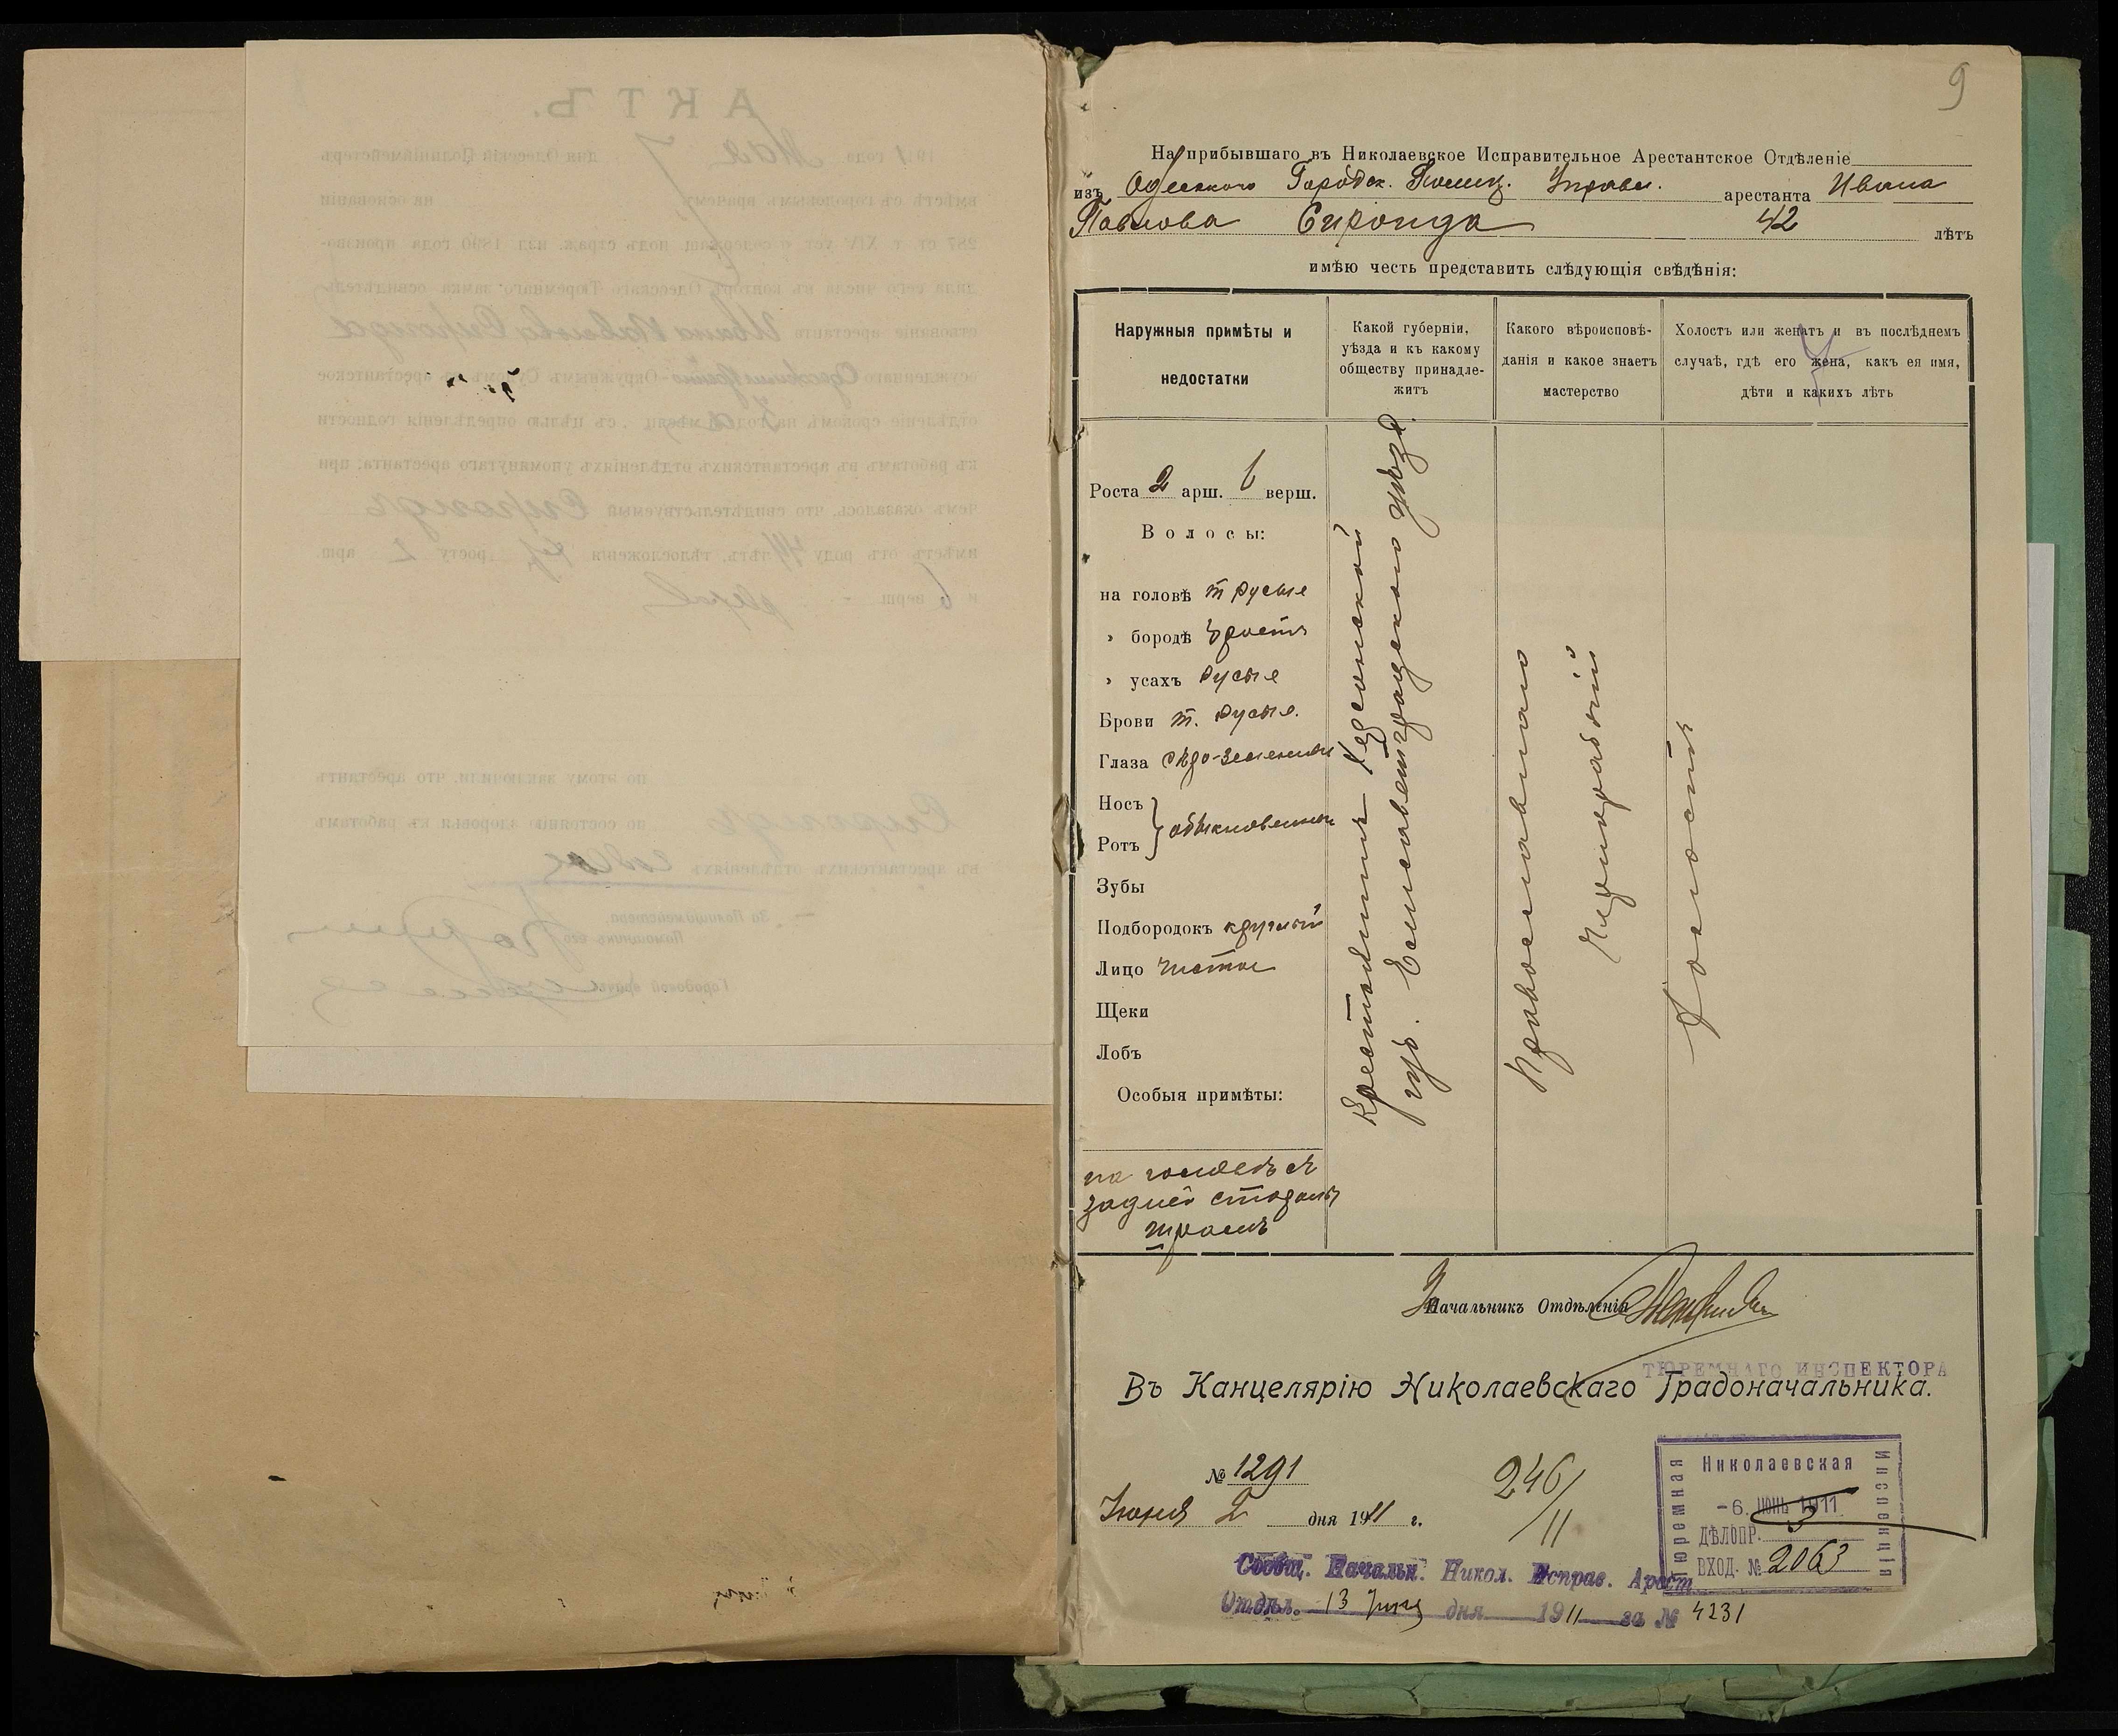 9
На прибывшаго въ Николаевское Исправительное Арестантское Отдѣленіе
изъ Одесскаго Городск. Полиц. Управл. арестанта Ивана
Павлова Сиронда 42 лѣтъ
имѣю честь представить слѣдующія свѣдѣнія:
Наружныя примѣты и
недостатки
Какой губерніи,
уѣзда и къ какому
обществу принадле-
житъ
Какого вѣроисповѣ-
данія и какое знаетъ
мастерство
Холостъ или женатъ и въ послѣднемъ
случаѣ, гдѣ его жена, какъ ея имя,
дѣти и какихъ лѣтъ
Роста 2 арш. 6 верш.
Волосы:
на головѣ т русые
" бородѣ
" усахъ русые
Брови т. русые.
Глаза сѣро-зеленые
Носъ
Ротъ } обыкновенные
Зубы
Подбородокъ круглый
Лицо чистое
Щеки
Лобъ
Особыя примѣты:
на головѣ съ
задней стороны
шрамъ
Крестьянинъ Херсонской
губ. Елисаветградского уѣзда.
Православнаго
Чернорабочій
Холостъ
Начальникъ Отдѣленія
ТЮРЕМНАГО ИНСПЕКТОРА
Въ Канцелярію Николаевскаго Градоначальника.
№ 1291
Іюня 2 дня 1911 г.
246/11
Николаевская
Тюремная
Инспекція
-6. ІЮНЬ 1911
ДѢЛОПР. 3
ВХОД. № 2063
Сообщ. Начальн. Никол. Исправ. Арест
Отдѣл. 13 Іюня дня 1911 за № 4231
АКТЪ.
1911 года Мая 7 дня Одесскій Полиціймейстеръ
вмѣстѣ съ городовымъ врачемъ на основаніи
287 ст. т. XIV уст. о содержащ. подъ страж. изд. 1890 года произво-
дила сего числа въ конторѣ Одесскаго Тюремнаго замка освидѣтель-
ствованіе арестанта Ивана Павлова Сиронда
осужденнаго Окружнымъ Судомъ въ арестантское
отдѣленіе срокомъ на года мѣсяц , съ цѣлью опредѣленія годности
къ работамъ въ арестантскихъ отдѣленіяхъ упомянутаго арестанта; при
чемъ оказалось, что свидѣтельствуемый Сирондъ
имѣетъ отъ роду лѣтъ, тѣлосложенія росту 2 арш.
и 6 верш.
по этому заключили, что арестантъ
Сирондъ по состоянію здоровья къ работамъ
въ арестантскихъ отдѣленіяхъ
За Полиціймейстера,
Помощникъ его
Городовой врачъ